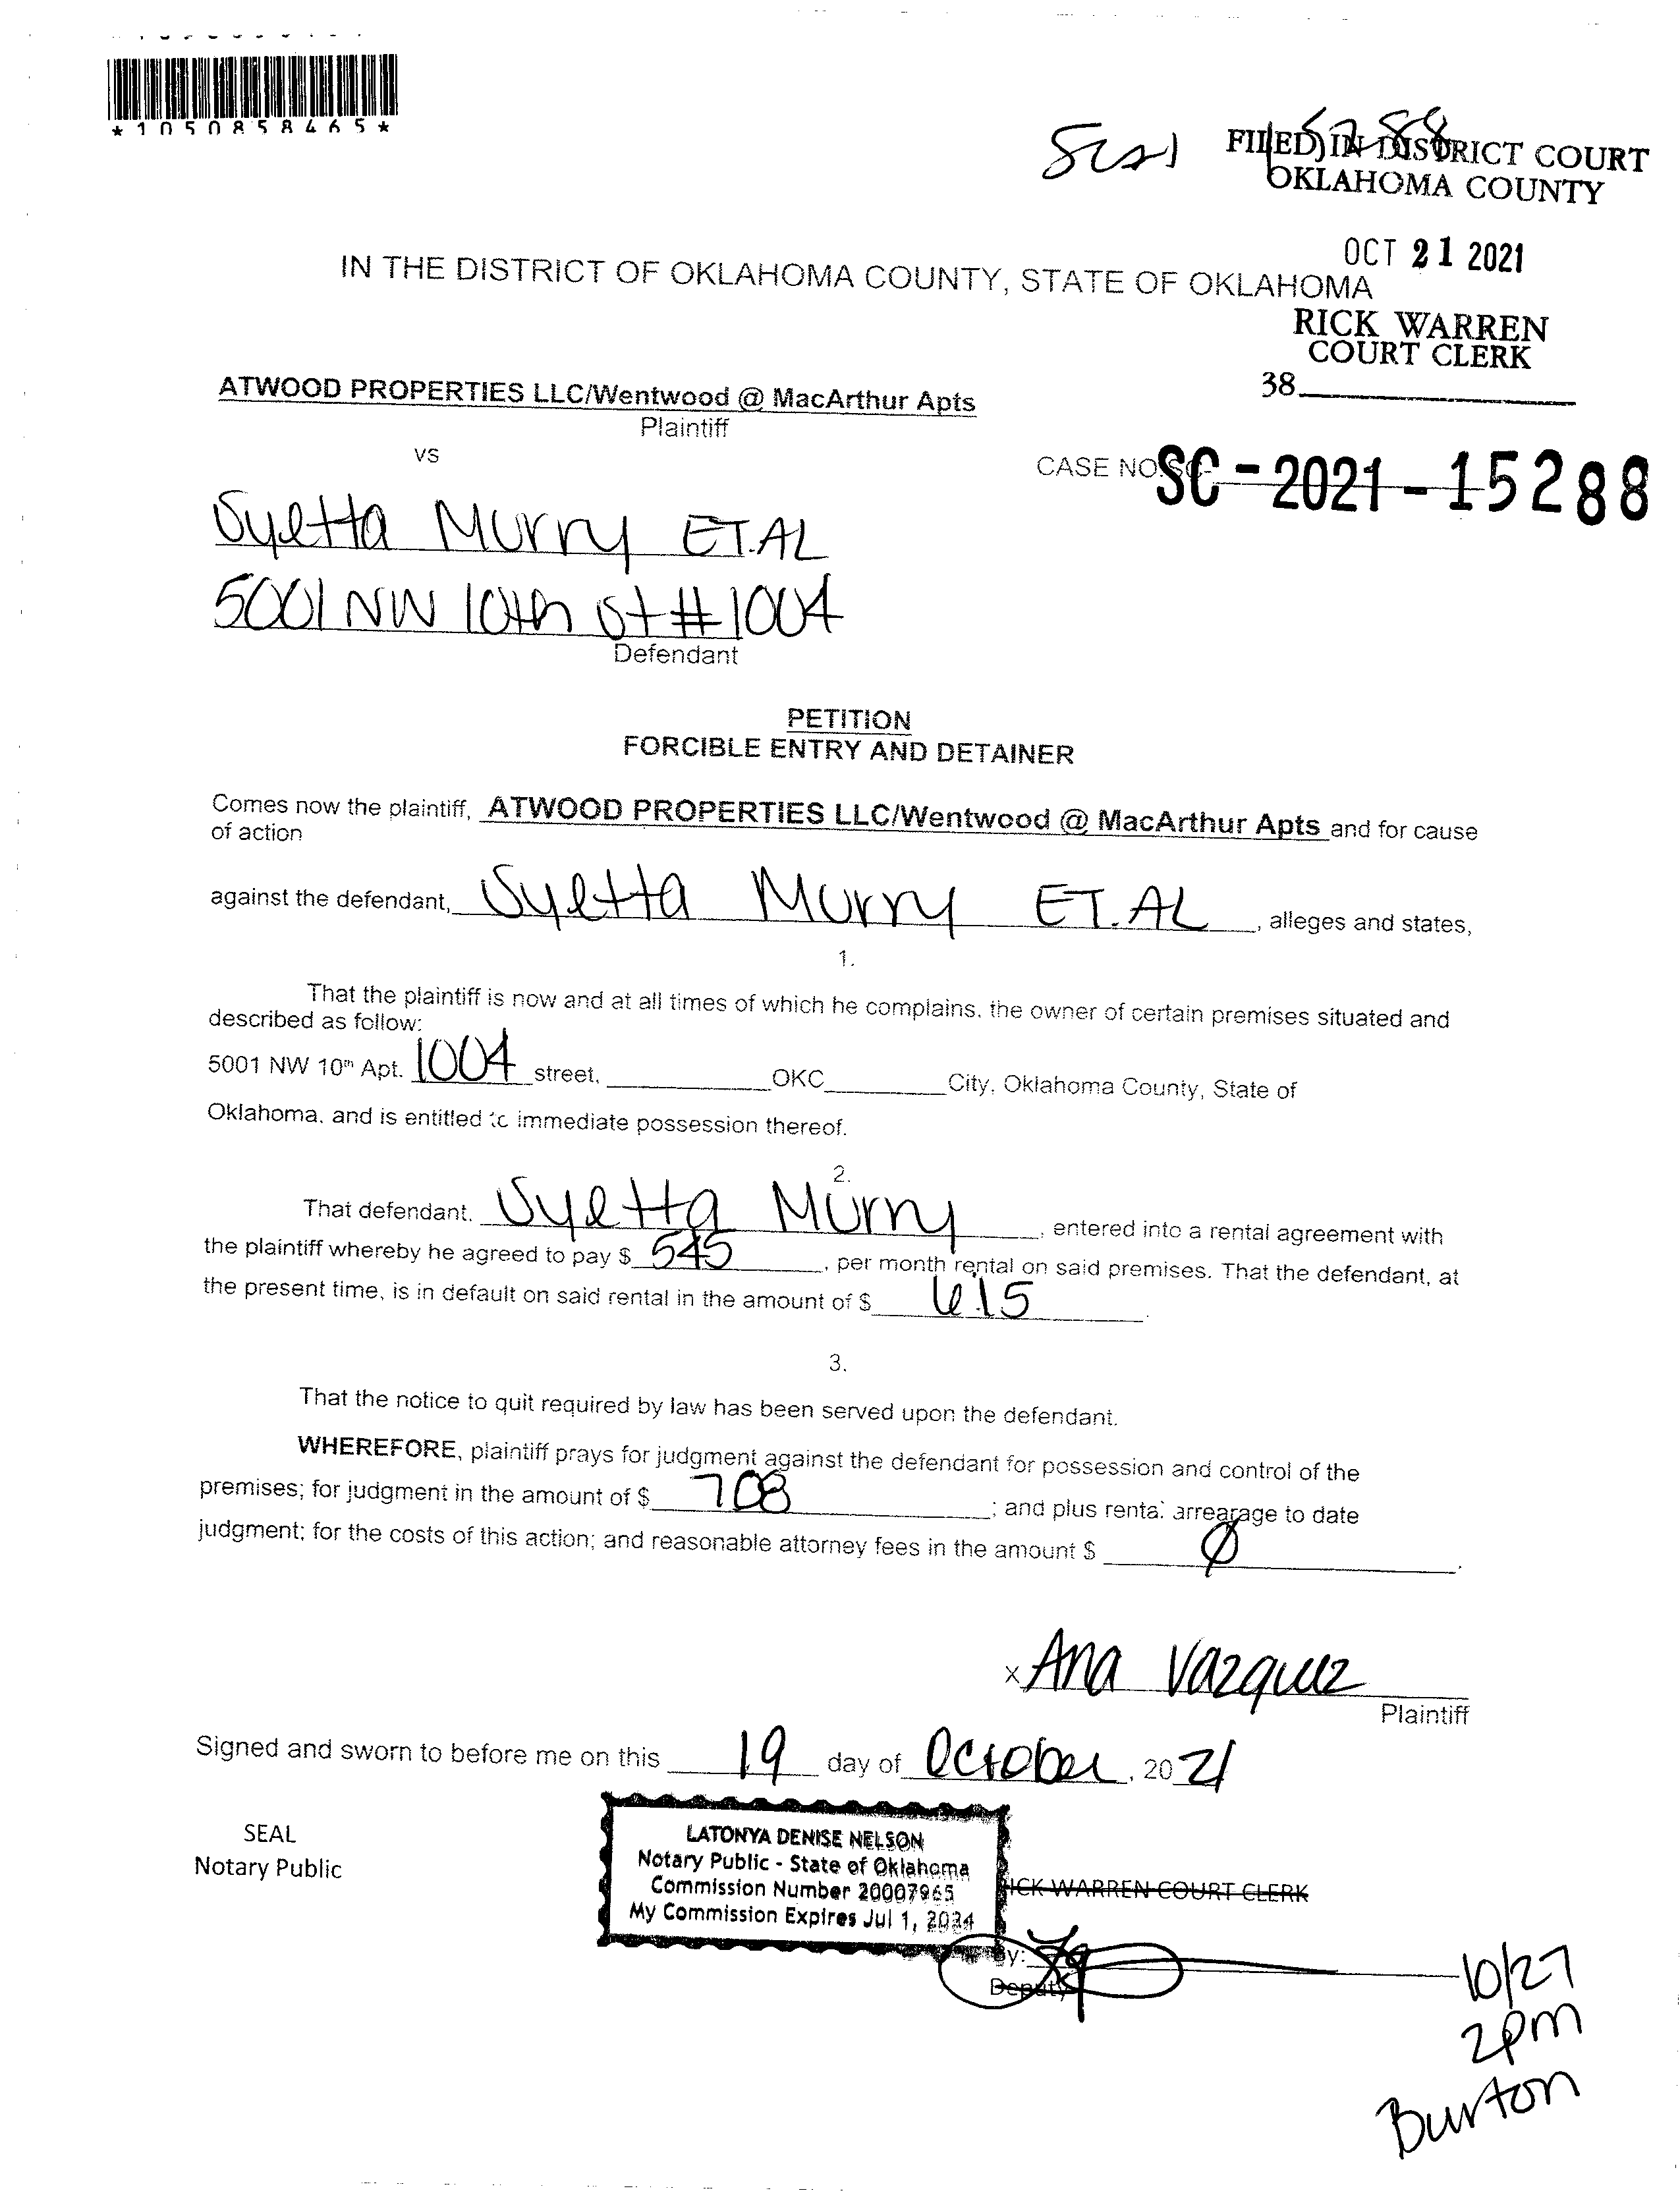 *1050858465*
FILED IN DISTRICT COURT
OKLAHOMA COUNTY
OCT 21 2021
IN THE DISTRICT OF OKLAHOMA COUNTY, STATE OF OKLAHOMA
RICK WARREN
COURT CLERK
38
ATWOOD PROPERTIES LLC/Wentwood @ MacArthur Apts
Plaintiff
vs
CASE NO. SC-2021-15288
Syetta Murry ET.AL
5001 NW 10th St #1004
Defendant
PETITION
FORCIBLE ENTRY AND DETAINER
Comes now the plaintiff, ATWOOD PROPERTIES LLC/Wentwood @ MacArthur Apts and for cause
of action
against the defendant, Syetta Murry ET.AL, alleges and states,
1.
That the plaintiff is now and at all times of which he complains, the owner of certain premises situated and
described as follow:
5001 NW 10th Apt. 1004 street, OKC City, Oklahoma County, State of
Oklahoma, and is entitled to immediate possession thereof.
2.
That defendant, Syetta Murry, entered into a rental agreement with
the plaintiff whereby he agreed to pay $ 545, per month rental on said premises. That the defendant, at
the present time, is in default on said rental in the amount of $ 615.
3.
That the notice to quit required by law has been served upon the defendant.
WHEREFORE, plaintiff prays for judgment against the defendant for possession and control of the
premises; for judgment in the amount of $ 708; and plus rental arrearage to date
judgment; for the costs of this action; and reasonable attorney fees in the amount $ Ø.
x Ana Vazquez
Plaintiff
Signed and sworn to before me on this 19 day of October, 2021
SEAL
Notary Public
LATONYA DENISE NELSON
Notary Public - State of Oklahoma
Commission Number 20007965
My Commission Expires Jul 1, 2024
ICK WARREN COURT CLERK
By:
Deputy
10/27
2pm
Burton